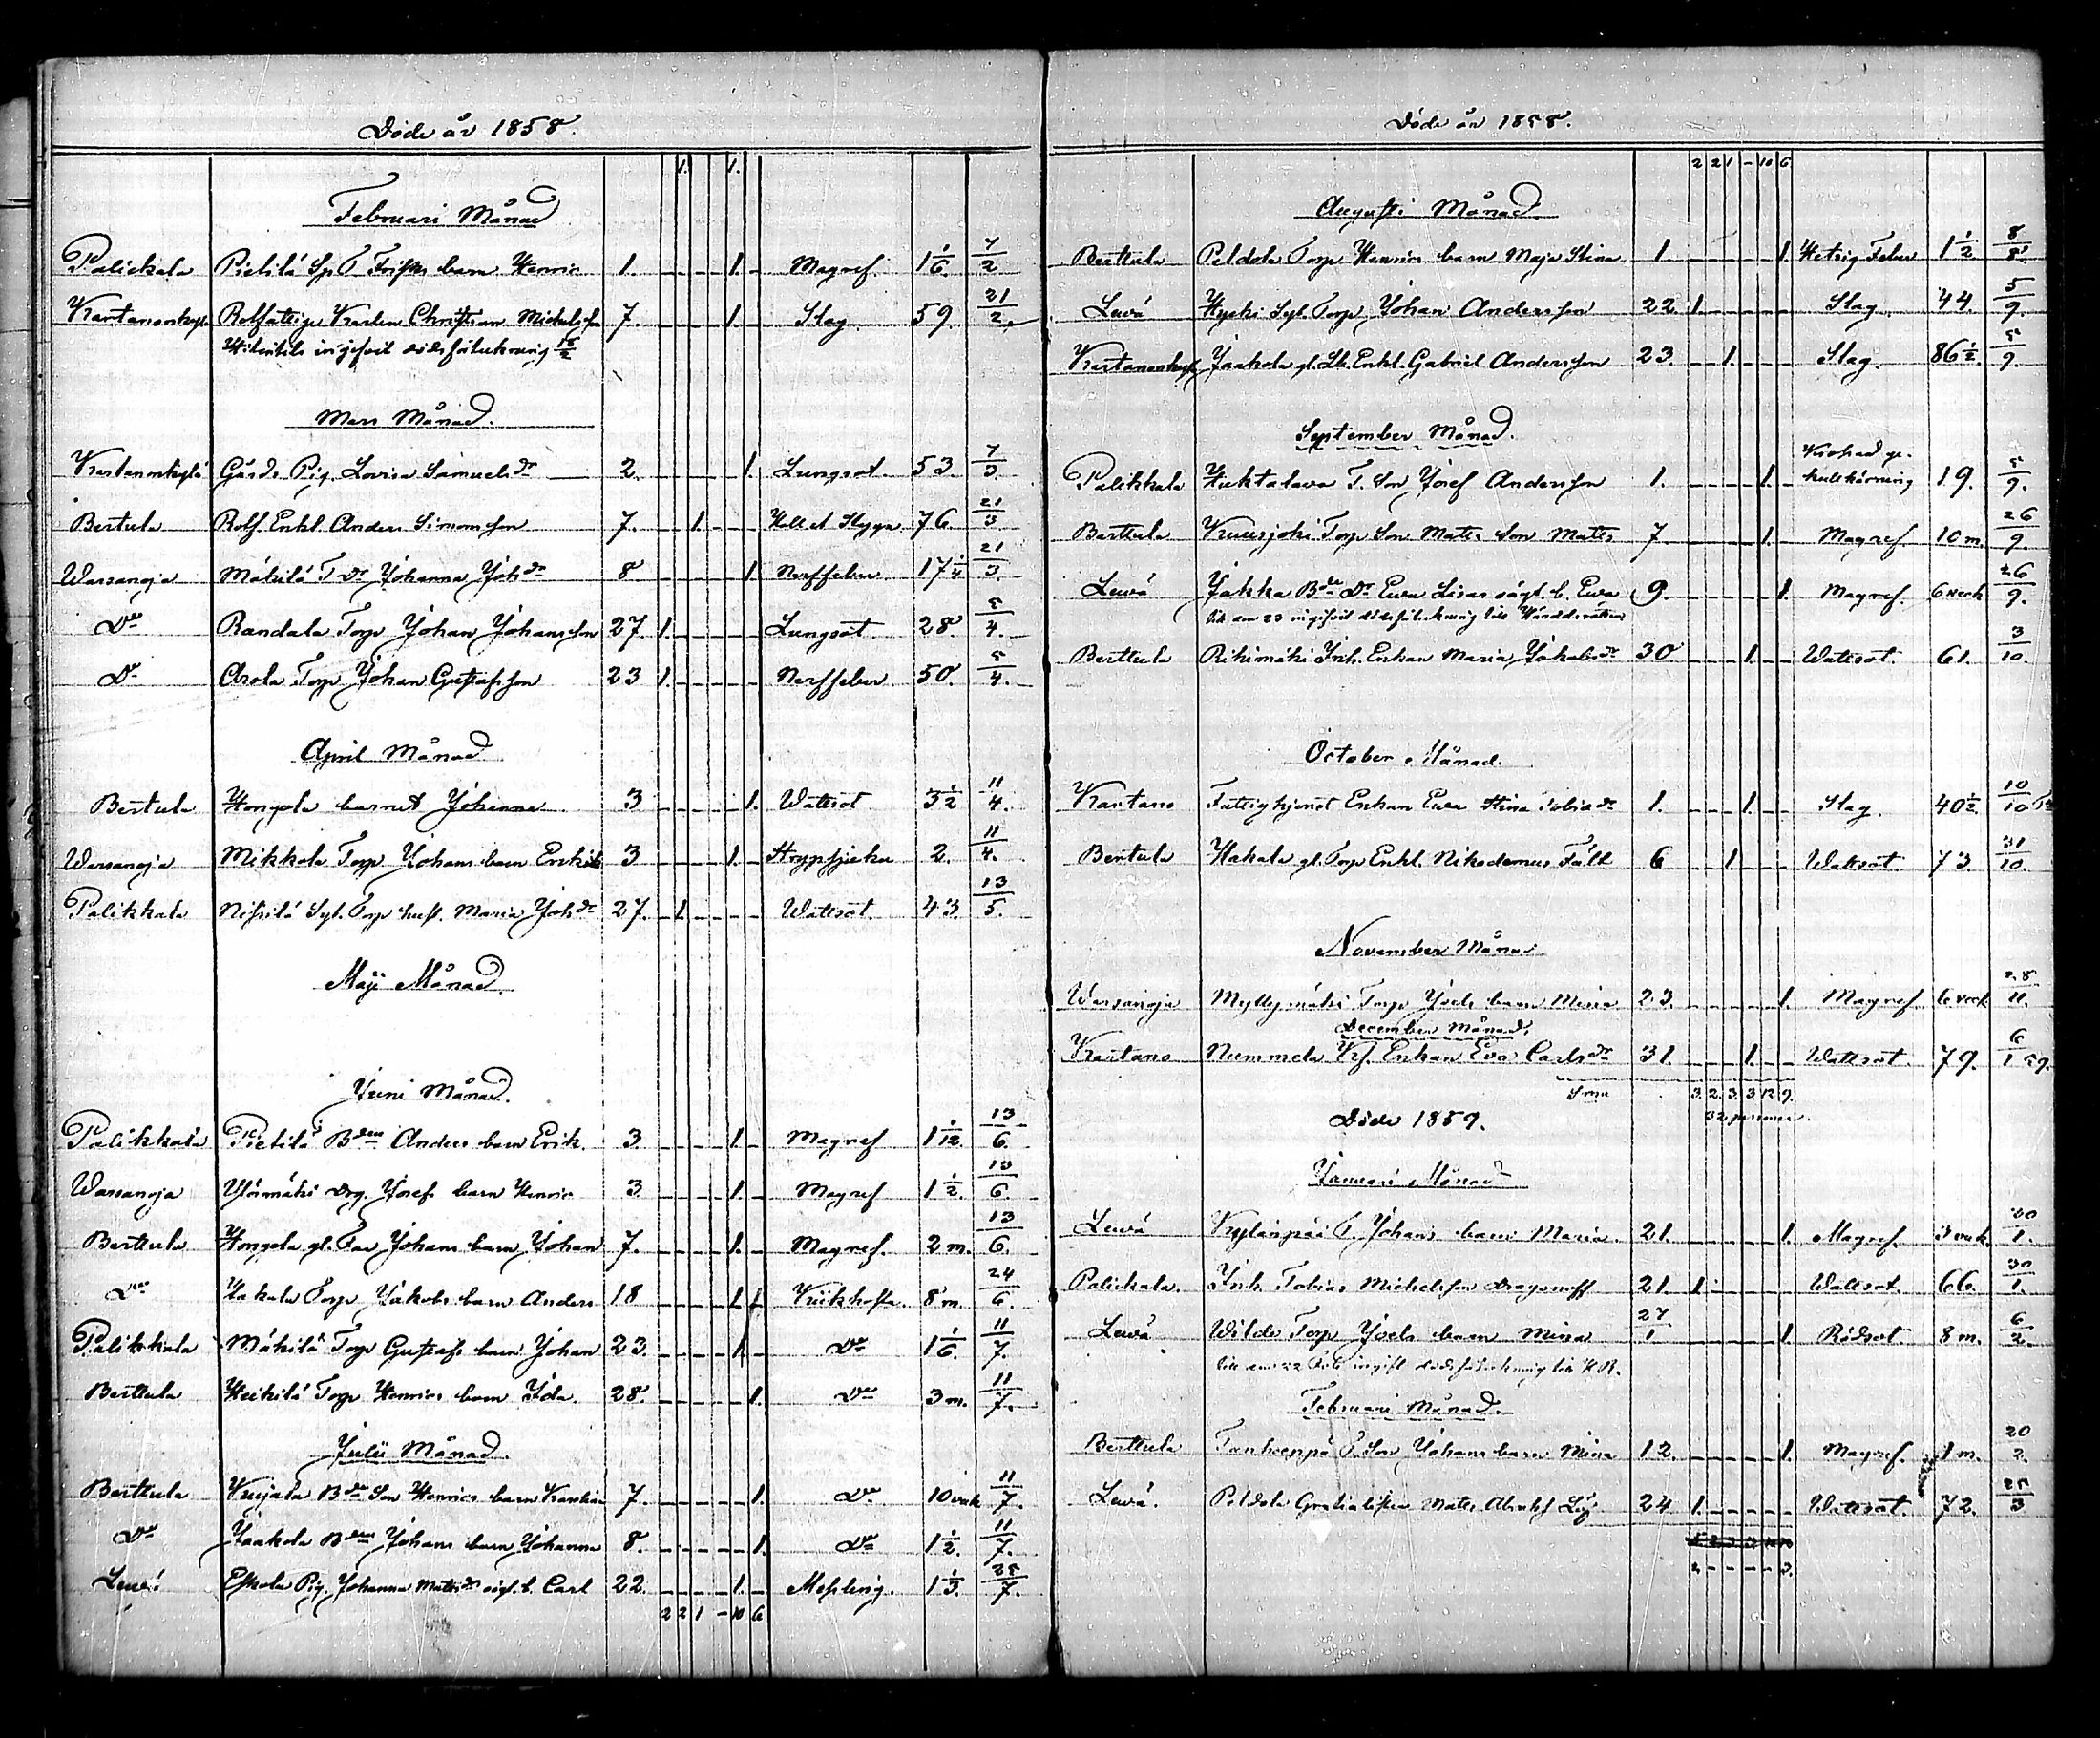 Döde år 1858.
1. 1.
Februari Månad
Palickala Pietilä Sp. T. barn Henric 1. 1. Magref 1 1/6 7/2
Rotfattige Karlen Christian Michelsson 7. 1. Slag. 59 21/2.
ingifvit dödsförtekning 15/2
Mars Månad.
Gårds Pig. Lovisa Samuelsdr 2. 1. Lungsot 53 7/3.
Bertula Rotf. Enkl. Anders Simonsson 7. 1. 76. 21/3
Warsanoja Mäkilä T. dr Johanna Johdr 8 1 Nerffeber 17 1/4 21/3.
Do Randala Torp Johan Johansson 27. 1. Lungsot. 28. 5/4.
Do Arola Torp Johan Gustafsson 23 1. Nerffeber 50. 5/4.
April Månad
Bertula Hongola barnet Johanna 3 1. Wattsot 3 1/2 11/4.
Warsanoja Mikkola Torp Johans barn 3 1. Strypsjuka 2. 11/4.
Palikkala Torp hust. Maria Johdr 27. 1. Wattsot. 43. 13/5.
Maji Månad.
Juni Månad.
Palikkala Pietilä Bden Anders barn Erik. 3. 1. Magref 1 1/12. 13/6.
Warsanoja Josefs barn Henric 3. 1. Magref 1 1/2. 13/6.
Berttula Hongola gl. Johans barn Johan 7. 1. Magref. 2 m. 13/6.
Do Hakala Torp Jakobs barn Anders 18 1. Kikhosta. 8 m. 24/6.
Palikkala Mäkilä Torp Gustafs barn Johan 23. 1. Do 1 1/6. 11/7.
Berttula Heikilä Torp Henrics barn Ida. 28. 1. Do 3 m. 11/7.
Julii Månad.
Berttula Son Henrics barn 7. 1. Do 10 veck 11/7.
Do Jaakola Bden Johans barn Johanna 8. 1. Do 1 1/2. 11/7.
Lewä Eskola Pig. Johanna Mattsdr oägt. b. Carl 22. 1. Mesling. 1 1/3. 25/7.
2 2 1 - 10 6
Döde år 1858.
2 2 1 - 10 6
Augusti Månad.
Berttula Peldola Torp Henrics barn Maja Stina 1. 1. Hetsig Feber 1 1/2 8/8.
Lewä Torp Johan Andersson 22. 1. Slag. 44. 5/9.
Jaakola gl. Enkl. Gabriel Andersson 23. 1. Slag. 86 1/2. 5/9.
September Månad.
Palikkala T. Son Josef Andersson 1. 1. 19. 5/9.
Berttula Torp Son Matts Son Matts 7 1. Magref. 10 m. 26/9.
Lewä Jakka Dr Ewa Lisas oägt. b. Ewa 9. 1. Magref. 6 veck 26/9.
den 23 ingifvit dödsförtekning till Häradsrätten
Berttula Inh. Enkan Maria Jakobsdr 30 1. Wattsot. 61. 3/10.
October Månad.
Kartano Fattighjonet Enkan Ewa Stina 1. 1. Slag. 40 1/2. 10/10
Bertula Hakala gl. Torp Enkl. Nikodemus Fält 6 1. Wattsot. 73. 31/10.
November Månad
Warsanoja Myllymäki Torp Joels barn Mina 23. 1. Magref. 6 veck 28/11.
December Månad.
Kartano Nummela Enkan Eva Carlsdr 31. 1. Wattsot. 79. 6/1 59.
Sma 3. 2. 3. 3. 12. 9.
32 personer.
Döde 1859.
Januari Månad
Lewä T. Johans barn Maria. 21. 1. Magref. 3 veck 30/1.
Palickala. Inh. Tobias Michelsson 21. 1. Wattsot. 66. 30/1.
Lewä Torp Joels barn Mina 27/1 1. Rödsot 8 m. 6/2.
den 22 Feb. ingift dödsförtekning till H.R.
Februari Månad.
Berttula T. Son Johans barn Mina 12. 1. Magref. 1 m. 20/2.
Lewä. Peldola Matts 24 1. Wattsot. 72. 25/3
2. - - - - 3.